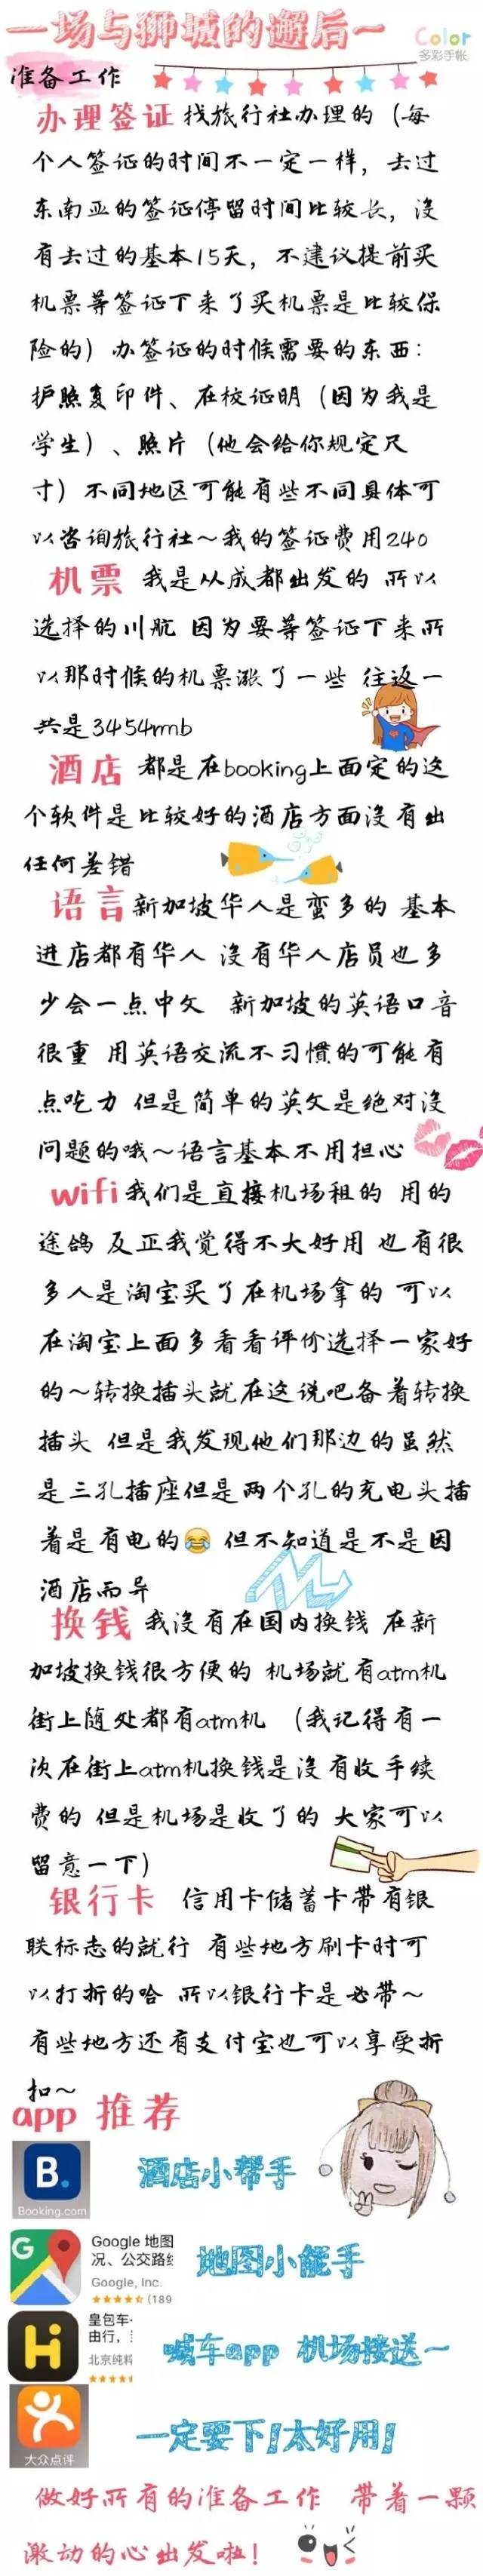 一场与狮城的邂后~
Color
多彩手帐
准备工作
办理签证 找旅行社办理的（每
个人签证的时间不一定一样，去过
东南亚的签证停留时间比较长，没
有去过的基本15天，不建议提前买
机票等签证下来了买机票是比较保
险的）办签证的时候需要的东西：
护照复印件、在校证明（因为我是
学生）、照片（他会给你规定尺
寸）不同地区可能有些不同具体可
以咨询旅行社~我的签证费用240
机票 我是从成都出发的 所以
选择的川航 因为要等签证下来所
以那时候的机票涨了一些 往返一
共是3454rmb
酒店 都是在booking上面定的这
个软件是比较好的酒店方面没有出
任何差错
语言 新加坡华人是蛮多的 基本
进店都有华人 没有华人店员也多
少会一点中文 新加坡的英语口音
很重 用英语交流不习惯的可能有
点吃力 但是简单的英文是绝对没
问题的哦~语言基本不用担心
wifi 我们是直接机场租的 用的
途鸽 反正我觉得不大好用 也有很
多人是淘宝买了在机场拿的 可以
在淘宝上面多看看评价选择一家好
的~转换插头就在这说吧备着转换
插头 但是我发现他们那边的虽然
是三孔插座但是两个孔的充电头插
着是有电的😂 但不知道是不是因
酒店而异
换钱 我没有在国内换钱 在新
加坡换钱很方便的 机场就有atm机
街上随处都有atm机 （我记得有一
次在街上atm机换钱是没有收手续
费的 但是机场是收了的 大家可以
留意一下）
银行卡 信用卡储蓄卡带有银
联标志的就行 有些地方刷卡时可
以打折的哈 所以银行卡是必带~
有些地方还有支付宝也可以享受折
扣~
app 推荐
B.
Booking.com
酒店小帮手
G
Google 地图
况、公交路线
Google, Inc.
(189
地图小能手
Hi
皇包车-
由行，
北京纯粹
喊车app 机场接送~
大众点评
一定要下！太好用！
做好所有的准备工作 带着一颗
激动的心出发啦！